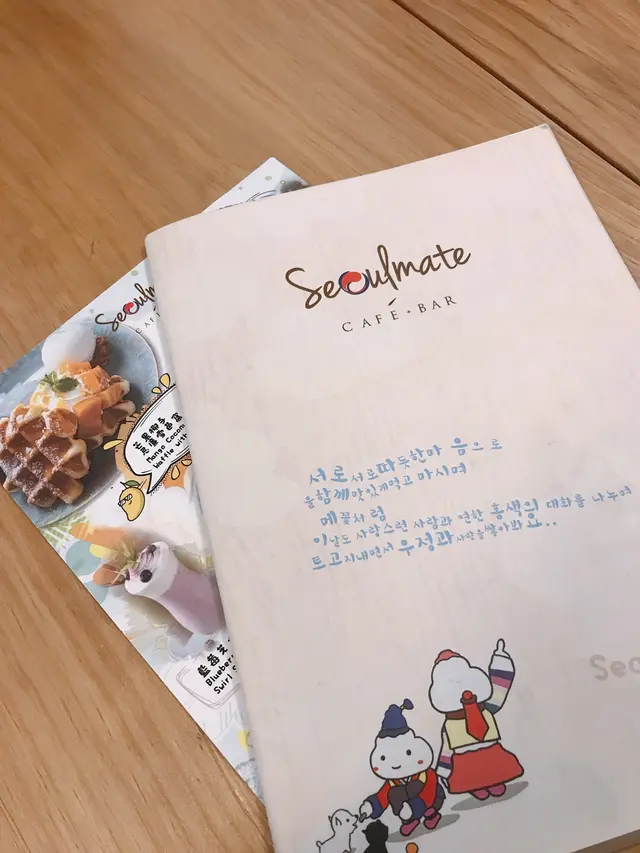 Seoulmate
CAFÉ + BAR
서로서로따듯한마 음으로
을함께맛있게먹고 마시며
메꽃처 럼
이날도 사랑스런 사람과 연한 홍색의 대화를 나누며
트고지내면서 우정과 사랑을쌓아봐요..
Seo
Seoulmate
CAF
Mango Cocon
Waffle with
藍莓
Blueber
Swirl S